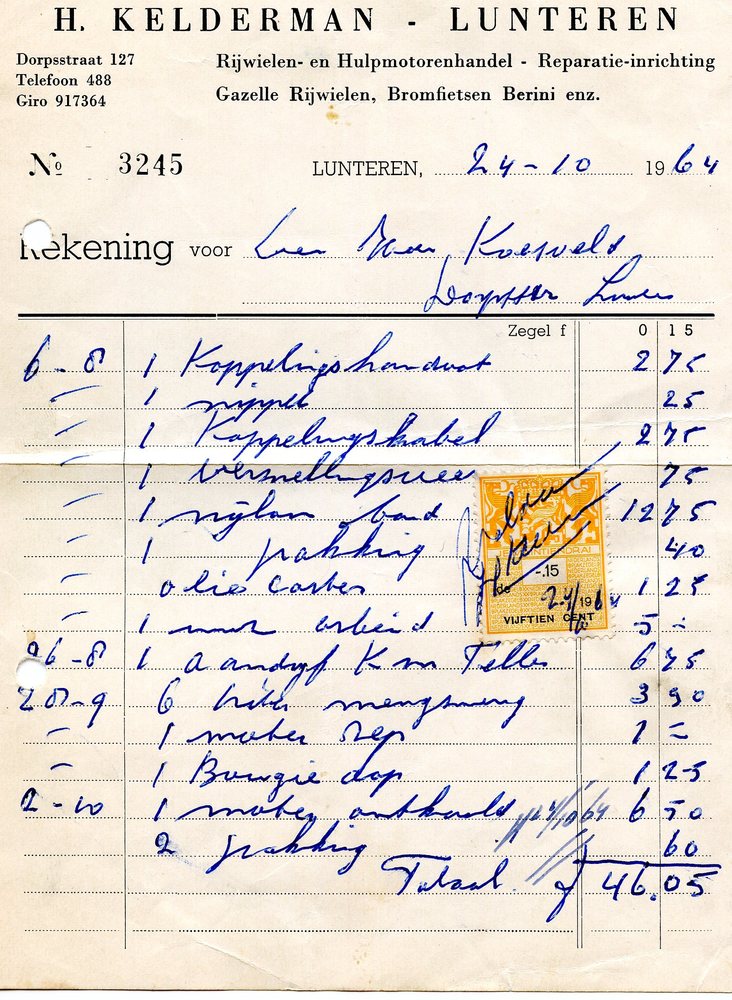 H. KELDERMAN - LUNTEREN
Dorpsstraat 127
Telefoon 488
Giro 917364
Rijwielen- en Hulpmotorenhandel - Reparatie-inrichting
Gazelle Rijwielen, Bromfietsen Berini enz.
No 3245
LUNTEREN, 24-10 1964
Rekening voor Koesveld
Zegel f 0 15
6-8 1 Koppelingshandvat 2 75
" 1 nippel 25
" 1 Koppelingskabel 2 75
" 1 versnellingsveer 75
" 1 nylon band 12 75
" 1 pakking 40
" olie carter 1 25
" 1 uur arbeid 5 =
26-8 1 aandrijf K m Teller 6 75
28-9 6 liter mengsmering 3 90
" 1 motor rep 1 =
" 1 Bougie dop 1 25
2-10 1 motor ontkoold 6 50
2 pakking 60
Totaal f 46.05
-.15
24/10 1964
VIJFTIEN CENT
24/10 64